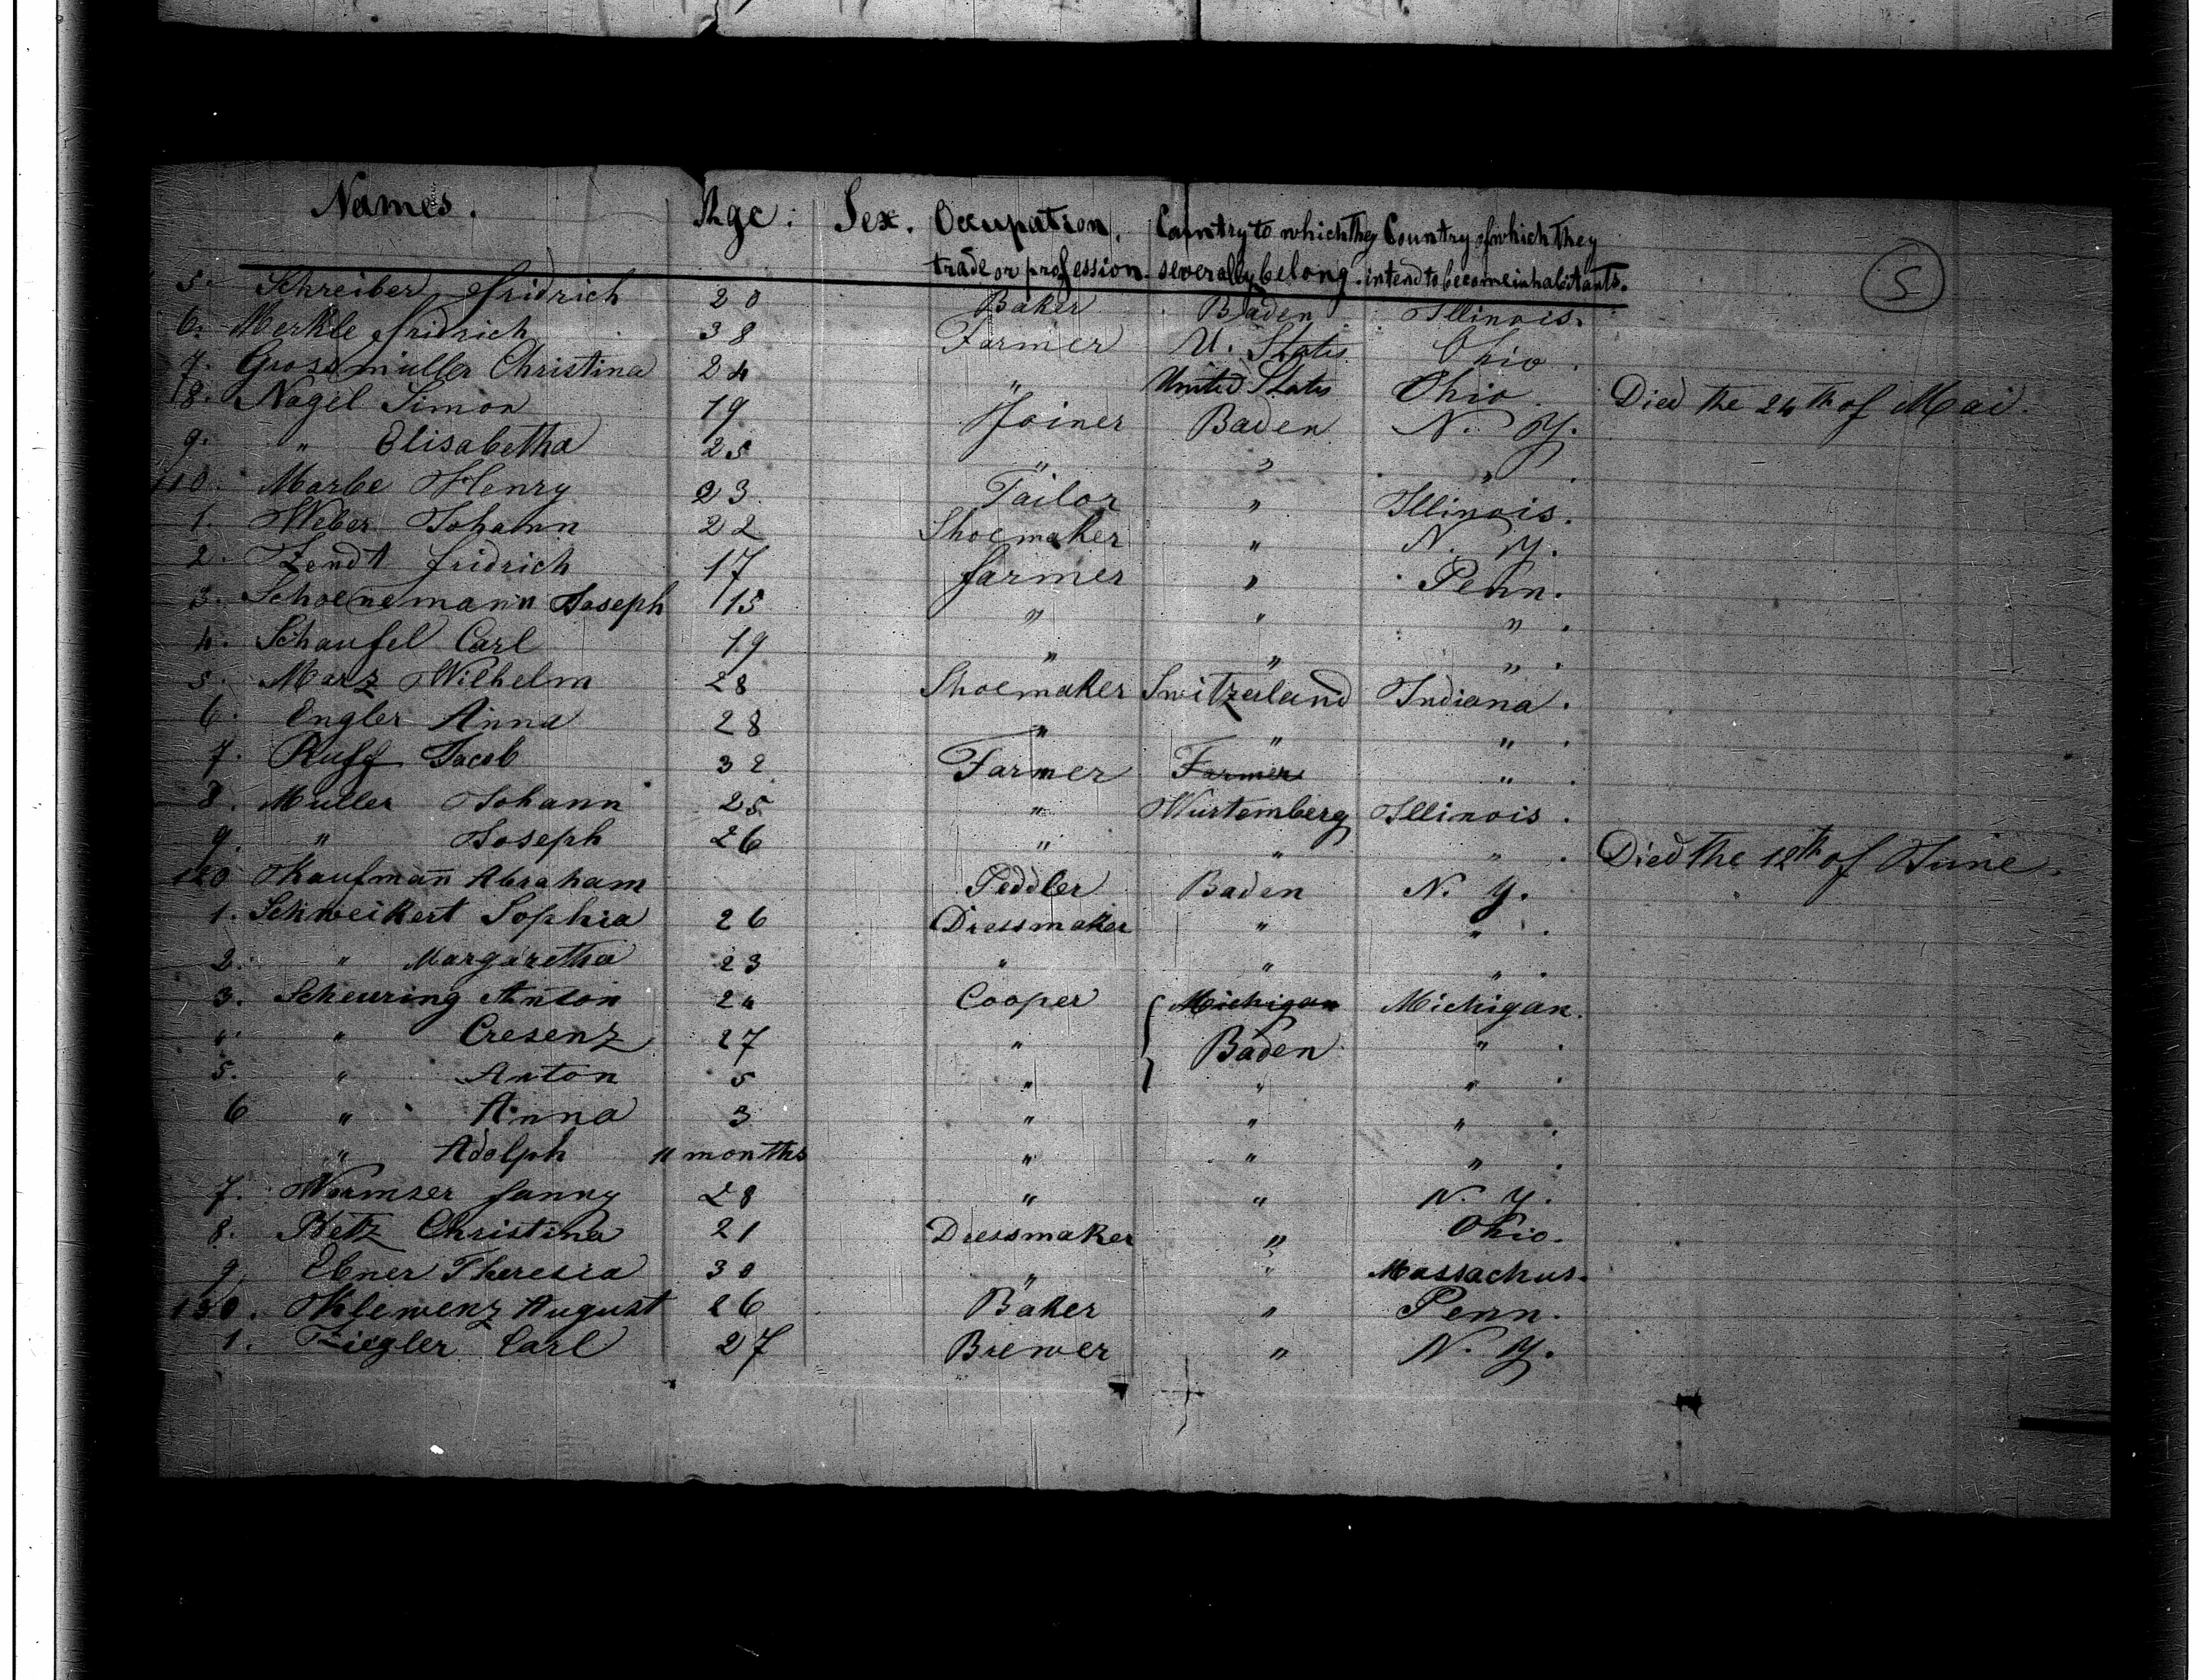 Names. Age: Sex. Occupation, Country to which they Country of which they
trade or profession severally belong. intend to become inhabitants.
S
5. Schreiber fridrich 20 Baker Baden Illinois.
6. Merkle fridrich 38 Farmer U. States Ohio.
7. Grossmüller Christina 24 " United States Ohio.
8. Nagel Simon 19 Joiner Baden N. Y. Died the 24th of Mai.
9. " Elisabetha 25 " " " .
110. Marbe Henry 23 Tailor " Illinois.
1. Weber Johann 22 Shoemaker " N. Y.
2. Zendt fridrich 17 farmer " Penn.
3. Schoenemann Joseph 15 " " " .
4. Schaufel Carl 19 " " " .
5. Marz Wilhelm 28 Shoemaker Switzerland Indiana.
6. Engler Anna 28 " " " .
7. Ruff Jacob 32 Farmer Farmer " .
8. Muller Johann 25 " Wurtemberg Illinois.
9. " Joseph 26 " " " . Died the 12th of June.
120 Kaufmann Abraham Peddler Baden N. Y.
1. Schweikert Sophia 26 Dressmaker " " .
2. " Margaretha 23 " " " .
3. Scheuring Anton 24 Cooper Michigan Michigan.
4. " Cresenz 27 " Baden " .
5. " Anton 5 " " " .
6 " Anna 3 " " " .
" Adolph 11 months " " " .
7. Wormser fanny 28 " " N. Y.
8. Betz Christina 21 Dressmaker " Ohio.
9. Ebner Theresia 30 " " Massachus.
130. Klemenz August 26 Baker " Penn.
1. Ziegler Carl 27 Brewer " N. Y.